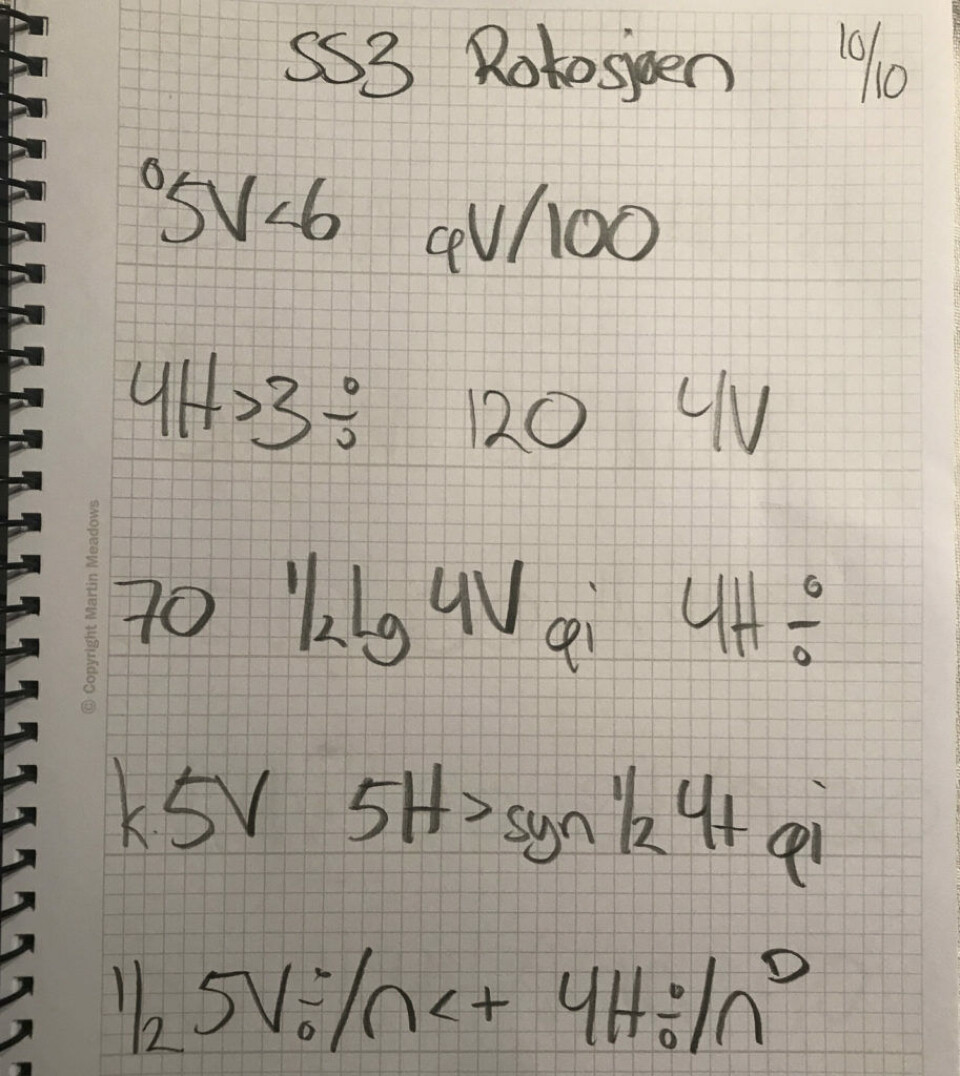 SS3 Rokosjøen 10/10
° 5V<6 φV/100
4H>3÷ 120 4V
70 1/2 Lg 4V φi 4H÷
k.5V 5H>syn 1/2 4H φi
1/2 5V÷/n<+ 4H÷/n D
© Copyright Martin Meadows